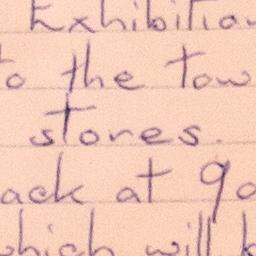 Exhibition
to the tow
stores.
ack at 90
which will b